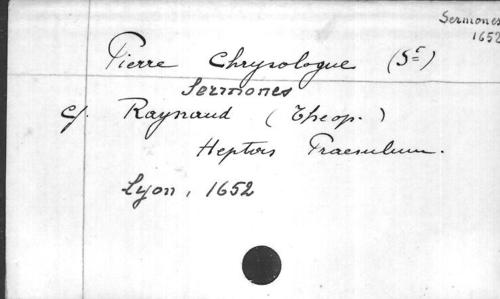 Sermones
1652
Pierre Chrysologue (St)
Sermones
cf. Raynaud (Theop.)
Heptas Praesulum.
Lyon, 1652